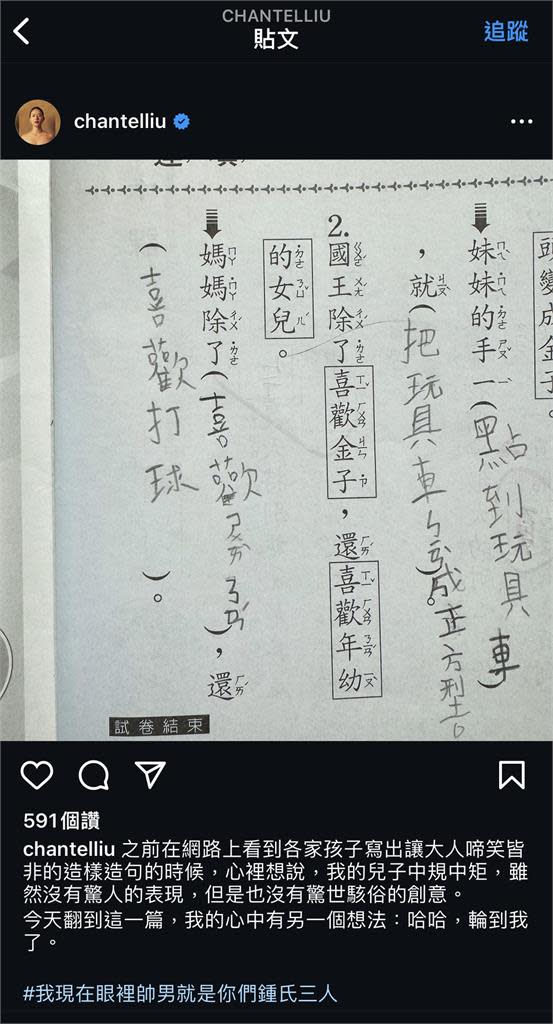 CHANTELLIU
貼文
追蹤
chantelliu
頭變成金子。
妹妹的手一(點到玩具車)
，就(把玩具車ㄅㄧㄢˋ成正方型。)。
2.國王除了喜歡金子，還喜歡年幼
的女兒。
媽媽除了(喜歡ㄕㄨㄞˋㄋㄢˊ)，還
(喜歡打球)。
試卷結束
591個讚
chantelliu 之前在網路上看到各家孩子寫出讓大人啼笑皆
非的造樣造句的時候，心裡想說，我的兒子中規中矩，雖
然沒有驚人的表現，但是也沒有驚世駭俗的創意。
今天翻到這一篇，我的心中有另一個想法：哈哈，輪到我
了。
#我現在眼裡帥男就是你們鍾氏三人